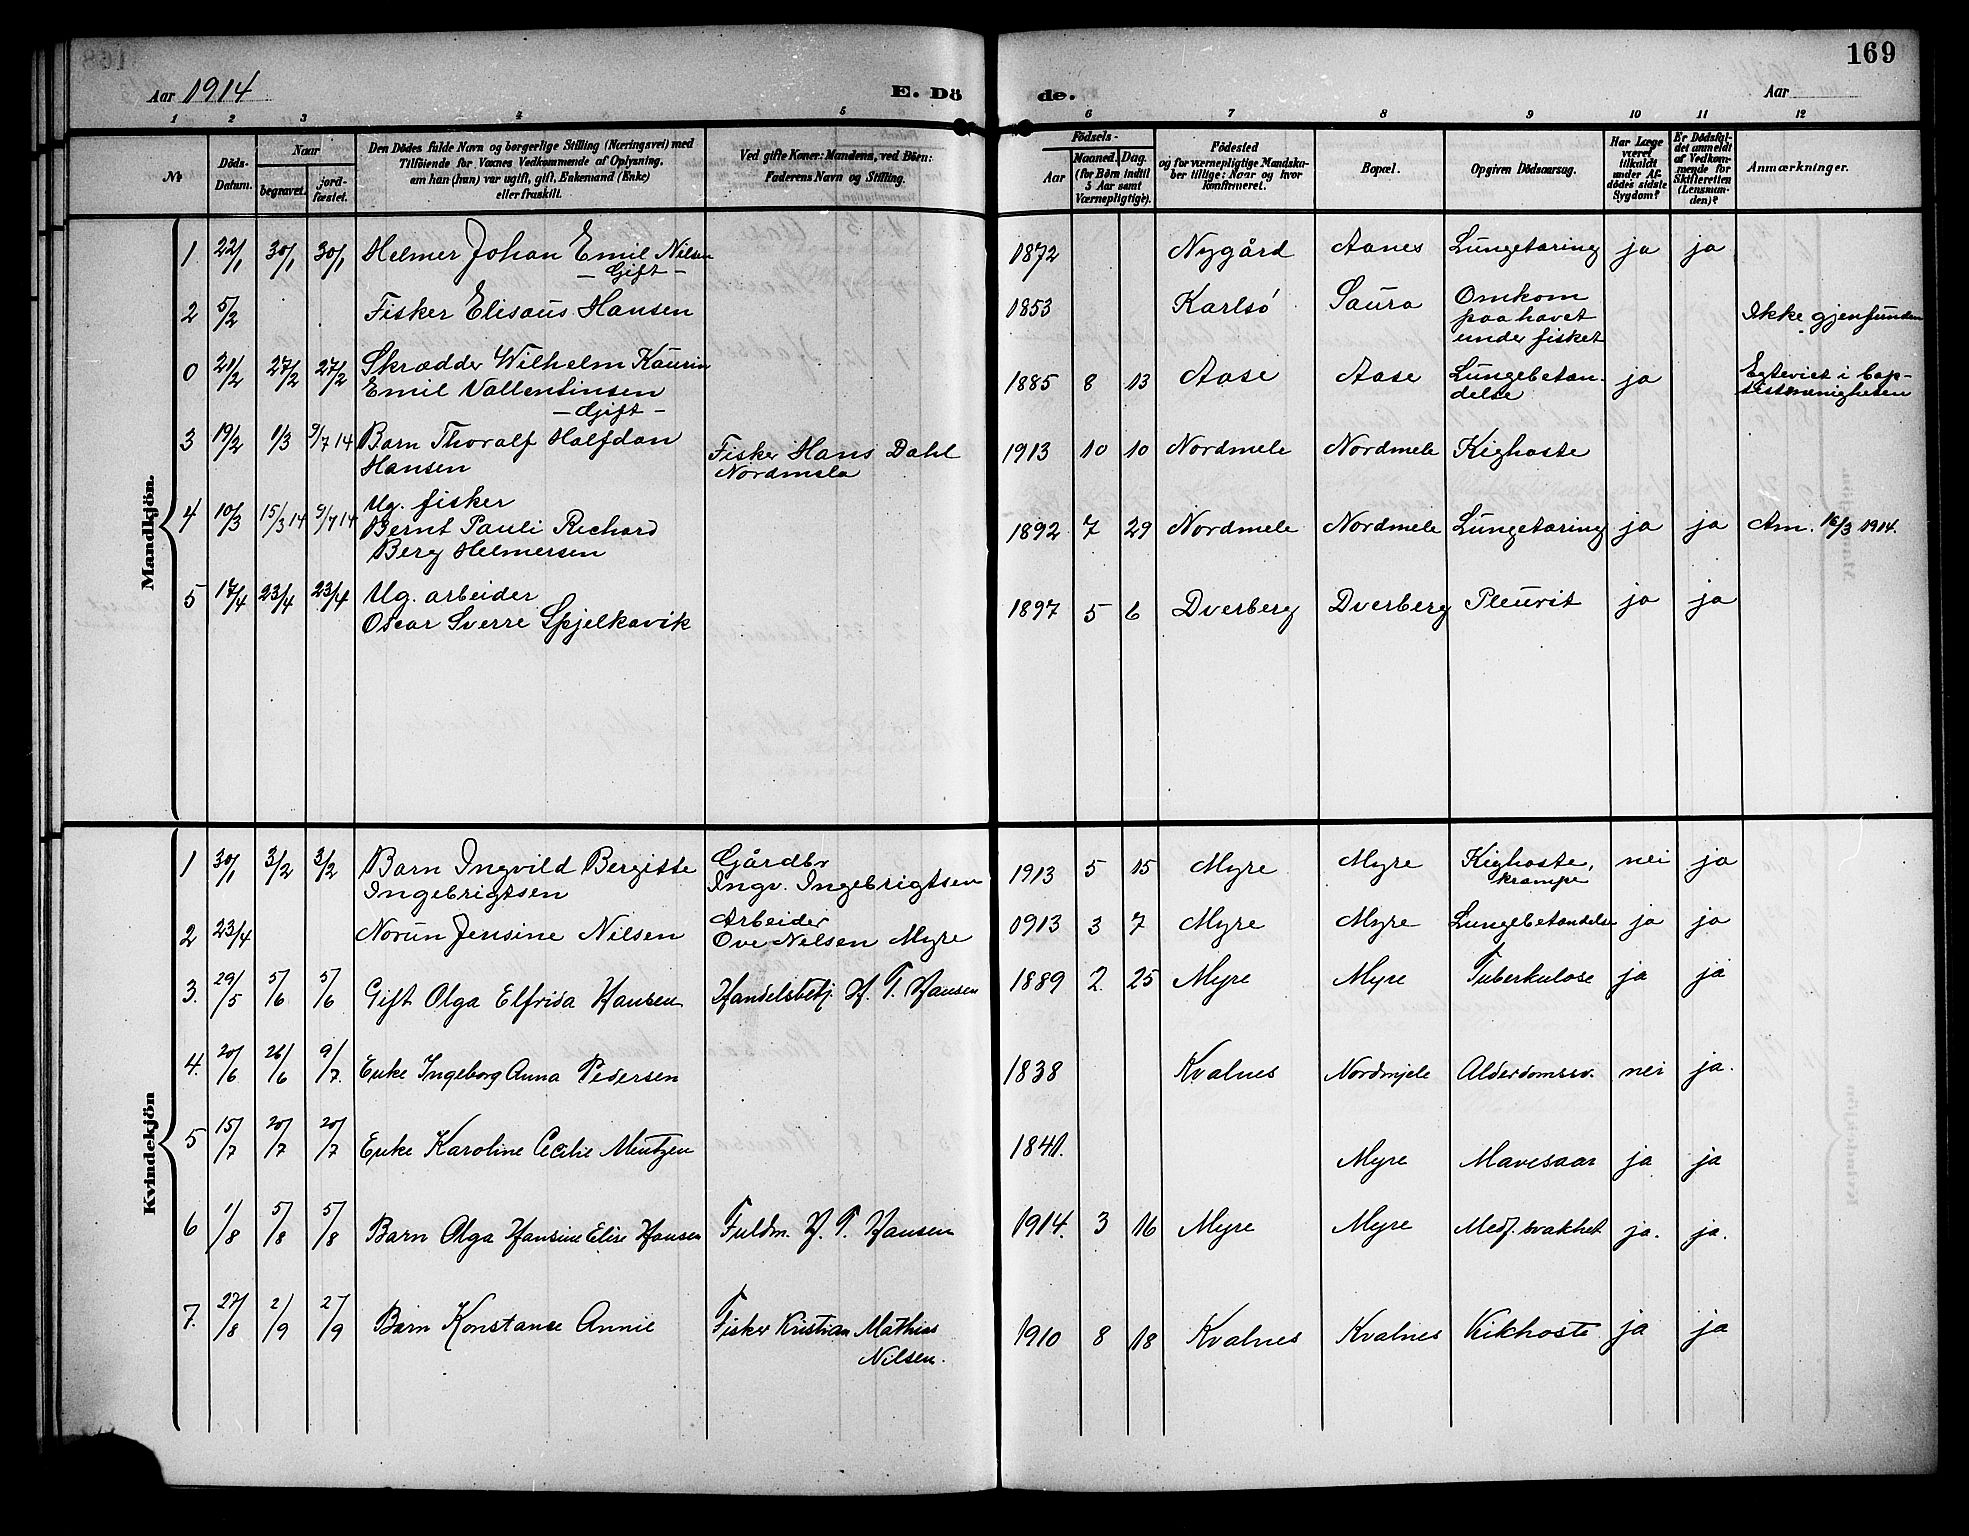 169
Aar 1914
E. Dö
de.
Aar
1 2 3 4 5 6 7 8 9 10 11 12
No
Döds-Datum.
Naar
begravet.
jord-fæstet.
Den Dödes fulde Navn og borgerlige Stilling (Næringsvei) med
Tilföiende for Voxnes Vedkommende af Oplysning,
om han (hun) var ugift, gift, Enkemand (Enke)
eller fraskilt.
Ved gifte Koner: Mandens, ved Börn:
Faderens Navn og Stilling.
Födsels-
Aar
Maaned. Dag.
(for Börn indtil
5 Aar samt
Værnepligtige).
Födested
og for værnepligtige Mandska-
ber tillige: Naar og hvor
konfirmeret.
Bopæl.
Opgiven Dödsaarsag.
Har Læge
været
tilkaldt
under Af-
dödes sidste
Sygdom?
Er Dödsfal-
det anmeldt
af Vedkom-
mende for
Skifteretten
(Lensman-
den)?
Anmærkninger.
Mandkjön.
1 22/1 30/1 30/1 Helmer Johan Emil Nilsen 1872 Nygård Aanes Lungetæring ja ja
– Gift –
2 5/2 Fisker Elisæus Hansen 1853 Karlsö Saura Omkom
paa havet
under fisket
Ikke gjenfunden
0 21/2 27/2 27/2 Skrædder Wilhelm Kaurin
Emil Vallentinsen 1885 8 13 Aase Aase Lungebetæn-
delse ja
– Gift –
Egteviet i bap-
tistmenigheten
3 19/2 1/3 9/7 14 Barn Thoralf Halfdan
Hansen
Fisker Hans Dahl
Nordmela
1913 10 10 Nordmele Nordmele Kighoste
4 10/3 15/3 14 9/7 14 Ug. fisker
Bernt Pauli Richard
Berg Helmersen
1892 7 29 Nordmele Nordmele Lungetæring ja ja Am. 16/3 1914.
5 17/4 23/4 23/4 Ug. arbeider
Oscar Sverre Spjelkavik
1897 5 6 Dverberg Dverberg Pleurit ja ja
Kvindekjön
1 30/1 3/2 3/2 Barn Ingvild Bergitte
Ingebrigtsen
Gårdbr
Ingv. Ingebrigtsen
1913 5 15 Myre Myre Kighoste,
krampe nei ja
2 23/4 Norun Jensine Nilsen
Arbeider
Ove Nilsen Myre
1913 3 7 Myre Myre Lungebetændelse ja ja
3. 29/5 5/6 5/6 Gift Olga Elfrida Hansen Handelsbetj. H. T. Hansen 1889 2 25 Myre Myre Tuberkulose ja ja
4. 20/6 26/6 9/7. Enke Ingeborg Anna Pedersen 1838 Kvalnes Nordmjele Alderdomssv. nei ja.
5 15/7 20/7 20/7 Enke Karoline Cecilie Mentzen 1841. Myre Mavesaar ja ja
6 1/8 5/8 5/8 Barn Olga Hansine Elise Hansen Fuldm. H. T. Hansen 1914. 3 16 Myre Myre Medf. svakhet ja. ja.
7. 27/8 2/9 27/9 Barn Konstanse Annie Fisker Kristian Mathias
Nilsen.
1910 8 18 Kvalnes Kvalnes Kikhoste ja ja